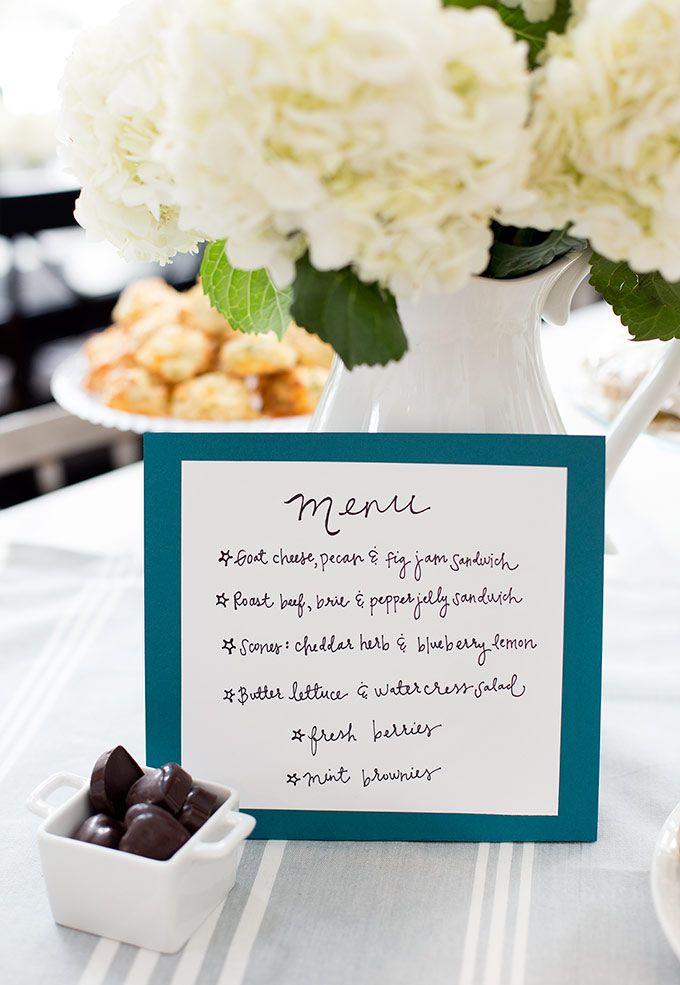 menu
☆ Goat cheese, pecan & fig jam sandwich
☆ Roast beef, brie & pepper jelly sandwich
☆ Scones: cheddar herb & blueberry lemon
☆ Butter lettuce & watercress salad
☆ fresh berries
☆ mint brownies